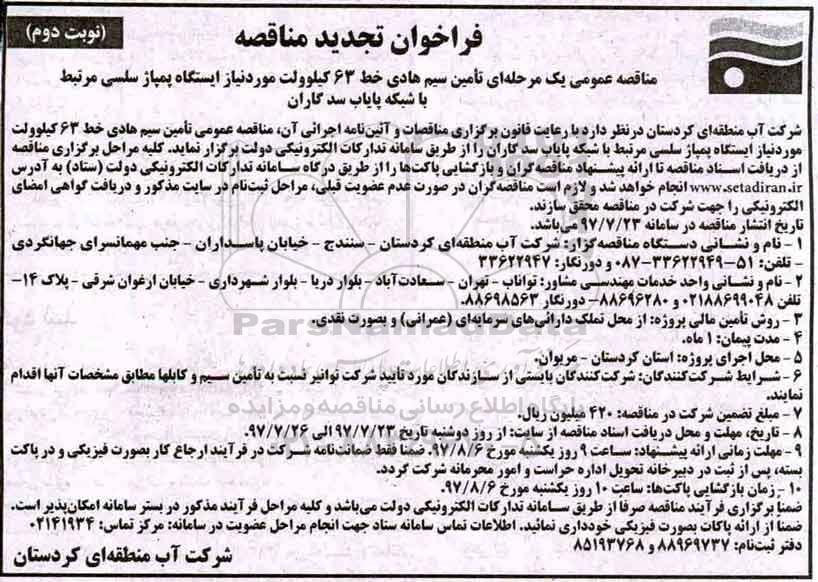 (نوبت دوم)
فراخوان تجدید مناقصه
مناقصه عمومی یک مرحله‌ای تأمین سیم هادی خط ۶۳ کیلوولت موردنیاز ایستگاه پمپاژ سلسی مرتبط
با شبکه پایاب سد گاران
شرکت آب منطقه‌ای کردستان درنظر دارد با رعایت قانون برگزاری مناقصات و آئین‌نامه اجرائی آن، مناقصه عمومی تأمین سیم هادی خط ۶۳ کیلوولت
موردنیاز ایستگاه پمپاژ سلسی مرتبط با شبکه پایاب سد گاران را از طریق سامانه تدارکات الکترونیکی دولت برگزار نماید. کلیه مراحل برگزاری مناقصه
از دریافت اسناد مناقصه تا ارائه پیشنهاد مناقصه‌گران و بازگشایی پاکت‌ها را از طریق درگاه سامانه تدارکات الکترونیکی دولت (ستاد) به آدرس
www.setadiran.ir انجام خواهد شد و لازم است مناقصه‌گران در صورت عدم عضویت قبلی، مراحل ثبت‌نام در سایت مذکور و دریافت گواهی امضای
الکترونیکی را جهت شرکت در مناقصه محقق سازند.
تاریخ انتشار مناقصه در سامانه ۹۷/۷/۲۳ می‌باشد.
۱- نام و نشانی دستگاه مناقصه‌گزار: شرکت آب منطقه‌ای کردستان - سنندج - خیابان پاسداران - جنب مهمانسرای جهانگردی
- تلفن: ۵۱-۳۳۶۲۲۹۴۹-۰۸۷ و دورنگار: ۳۳۶۲۲۹۴۷
۲- نام و نشانی واحد خدمات مهندسی مشاور: تواناب - تهران - سعادت‌آباد - بلوار دریا - بلوار شهرداری - خیابان ارغوان شرقی - پلاک ۱۴-
تلفن ۰۲۱۸۸۶۹۹۰۴۸ و ۸۸۶۹۶۲۸۰- دورنگار ۸۸۶۹۸۵۶۳.
۳- روش تأمین مالی پروژه: از محل تملک دارائی‌های سرمایه‌ای (عمرانی) و بصورت نقدی.
۴- مدت پیمان: ۱ ماه.
۵- محل اجرای پروژه: استان کردستان - مریوان.
۶- شرایط شرکت‌کنندگان: شرکت‌کنندگان بایستی از سازندگان مورد تأیید شرکت توانیر نسبت به تأمین سیم و کابلها مطابق مشخصات آنها اقدام
نمایند.
۷- مبلغ تضمین شرکت در مناقصه: ۴۲۰ میلیون ریال.
۸- تاریخ، مهلت و محل دریافت اسناد مناقصه از سایت: از روز دوشنبه تاریخ ۹۷/۷/۲۳ الی ۹۷/۷/۲۶.
۹- مهلت زمانی ارائه پیشنهاد: ساعت ۹ روز یکشنبه مورخ ۹۷/۸/۶. ضمناً فقط ضمانت‌نامه شرکت در فرآیند ارجاع کار بصورت فیزیکی و در پاکت
بسته، پس از ثبت در دبیرخانه تحویل اداره حراست و امور محرمانه شرکت گردد.
۱۰- زمان بازگشایی پاکت‌ها: ساعت ۱۰ روز یکشنبه مورخ ۹۷/۸/۶.
ضمناً برگزاری فرآیند مناقصه صرفاً از طریق سامانه تدارکات الکترونیکی دولت می‌باشد و کلیه مراحل فرآیند مذکور در بستر سامانه امکان‌پذیر است.
ضمناً از ارائه پاکات بصورت فیزیکی خودداری نمائید. اطلاعات تماس سامانه ستاد جهت انجام مراحل عضویت در سامانه: مرکز تماس: ۰۲۱۴۱۹۳۴
دفتر ثبت‌نام: ۸۸۹۶۹۷۳۷ و ۸۵۱۹۳۷۶۸
شرکت آب منطقه‌ای کردستان
ParsNamadData
پایگاه اطلاع رسانی مناقصه و مزایده